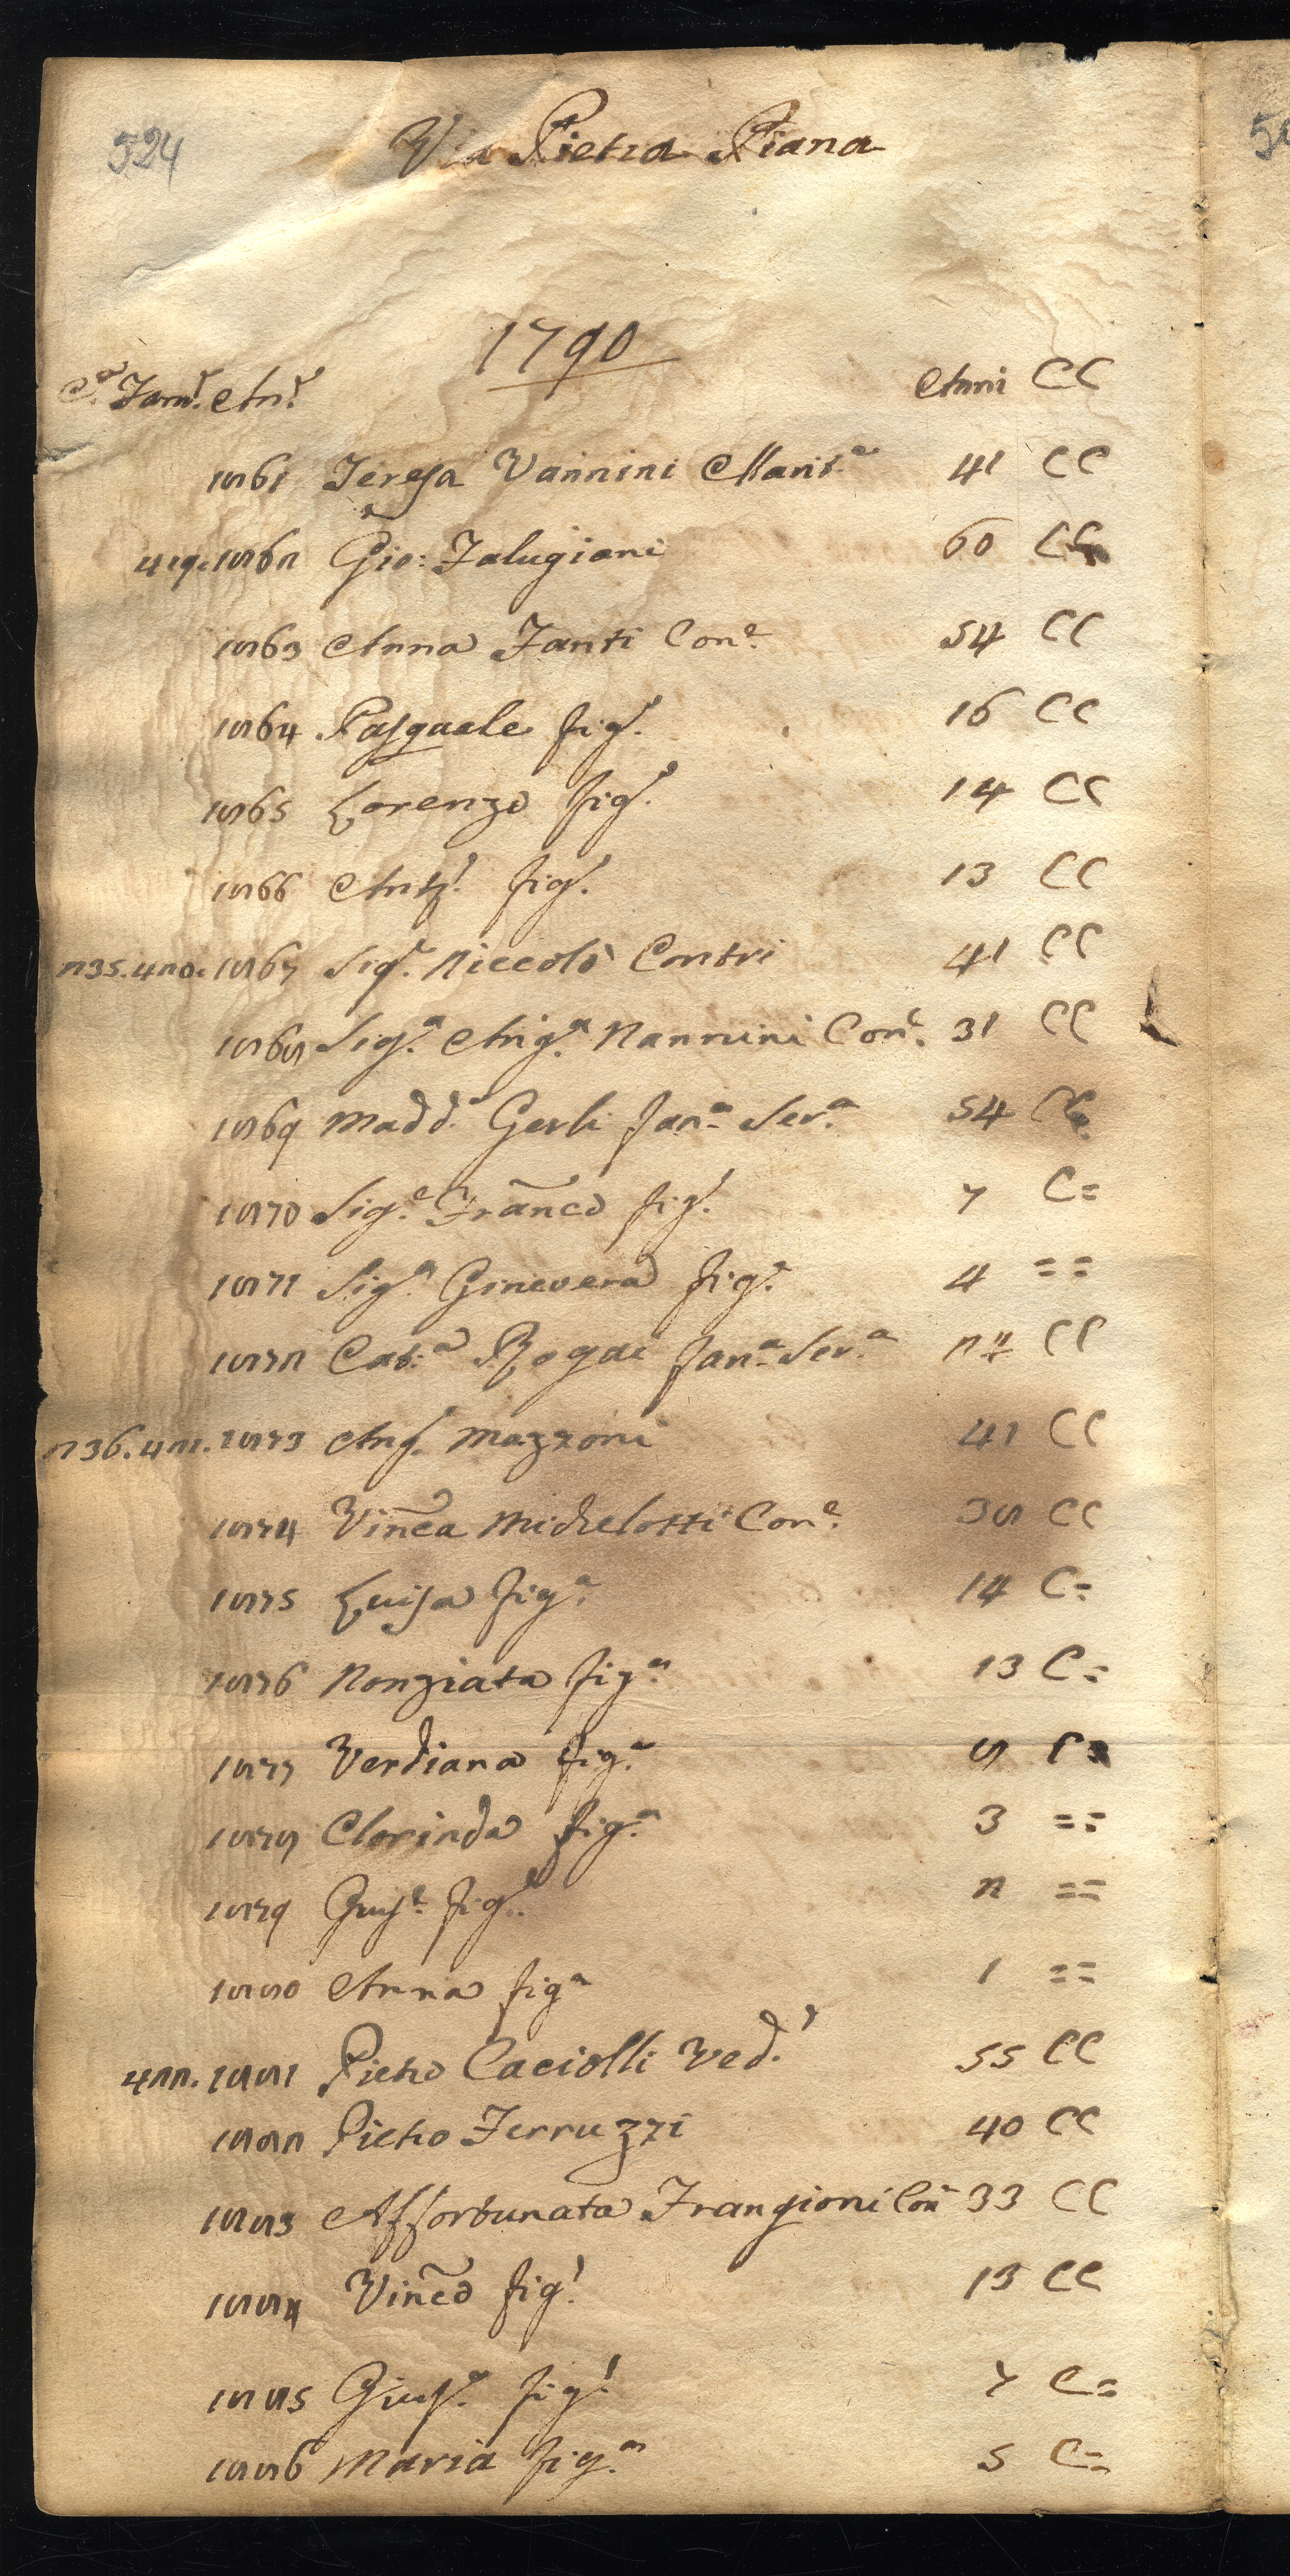 524
Via Pietra Piana
1790
C.ª Fam.e An.e Anni CC
1861 Teresa Vannini Marit.ª 41 CC
419. 1862 Gio: Falugiani 60 CC
1863 Anna Fanti Con.e 54 CC
1864 Pasquale fig.o 16 CC
1865 Lorenzo fig.o 14 CC
1866 Ant.o fig.o 13 CC
235. 420. 1867 Sig.e Niccolò Contri 41 CC
1868 Sig.ª Ang.ª Nannini Con.e 31 CC
1869 Madd.ª Gerli fan.ª Ser.ª 54 CC
1870 Sig.e Franco fig.o 7 C=
1871 Sig.ª Ginevera fig.ª 4 ==
1872 Cat.ª Rogai fan.ª Ser.ª CC
236. 421. 1873 Ang.o Mazzoni 41 CC
1874 Vinca Michelotti Con.e 38 CC
1875 Luisa fig.ª 14 C=
1876 Nonziata fig.ª 13 C=
1877 Verdiana fig.ª 8 C=
1878 Clorinda fig.ª 3 ==
1879 Gius.e fig.o 2 ==
1880 Anna fig.ª 1 ==
422. 1881 Pietro Caciolli Ved.o 55 CC
1882 Pietro Ferruzzi 40 CC
1883 Affortunata Frangioni Con 33 CC
1884 Vinco fig.o 13 CC
1885 Gius.e fig.o 7 C=
1886 Maria fig.ª 5 C=